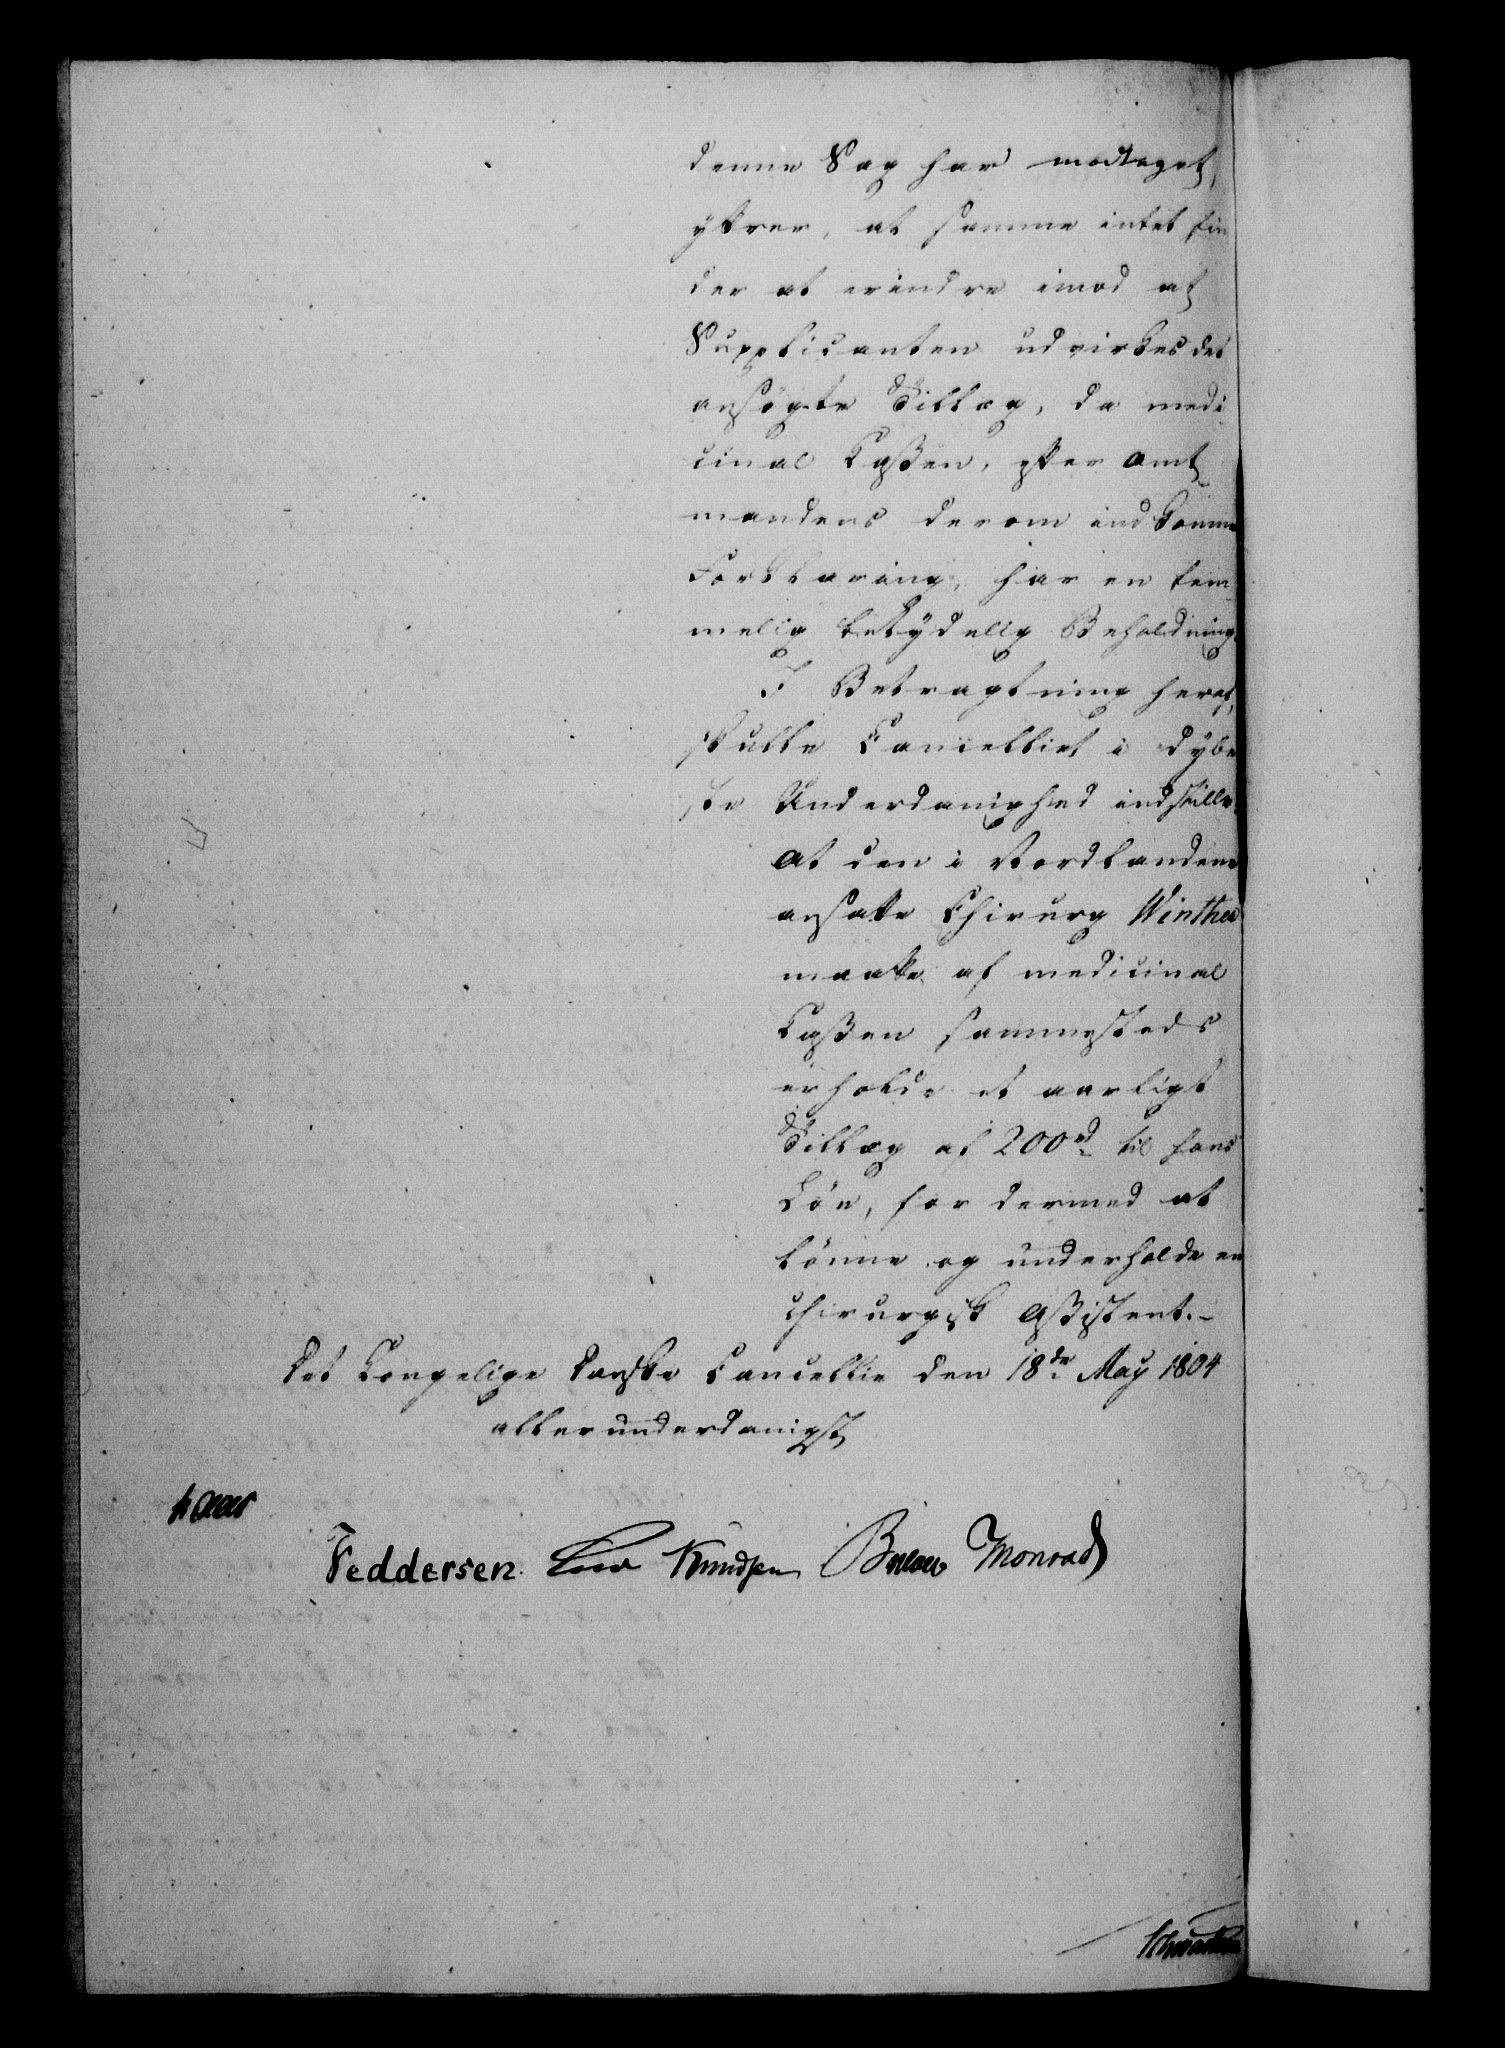 denne Sag har modtaget,
yttrer, at samme intet fin
der at erindre imod at
Supplicanten udvirkes det
ansögte Tillæg, da medi
cinal Caßen, efter Amt
mandens derom indkomne
Forklaring, har en tem
melig betydelig Beholdning.
I Betragtning heraf,
skulle Cancelliet i dybe
ste Underdanighed indstille.
At den i Nordlandene
ansatte Chirurg Winther
maatte af medicinal
Caßen sammesteds
erholde et aarligt
Tillæg af 200rd til hans
Lön, for dermed at
lönne og underholde en
chirurgisk Aßistent.-
Det Kongelige Danske Cancellie den 18de May 1804
allerunderdanigst
Kaas
Feddersen. Knudsen Bülow Monrad